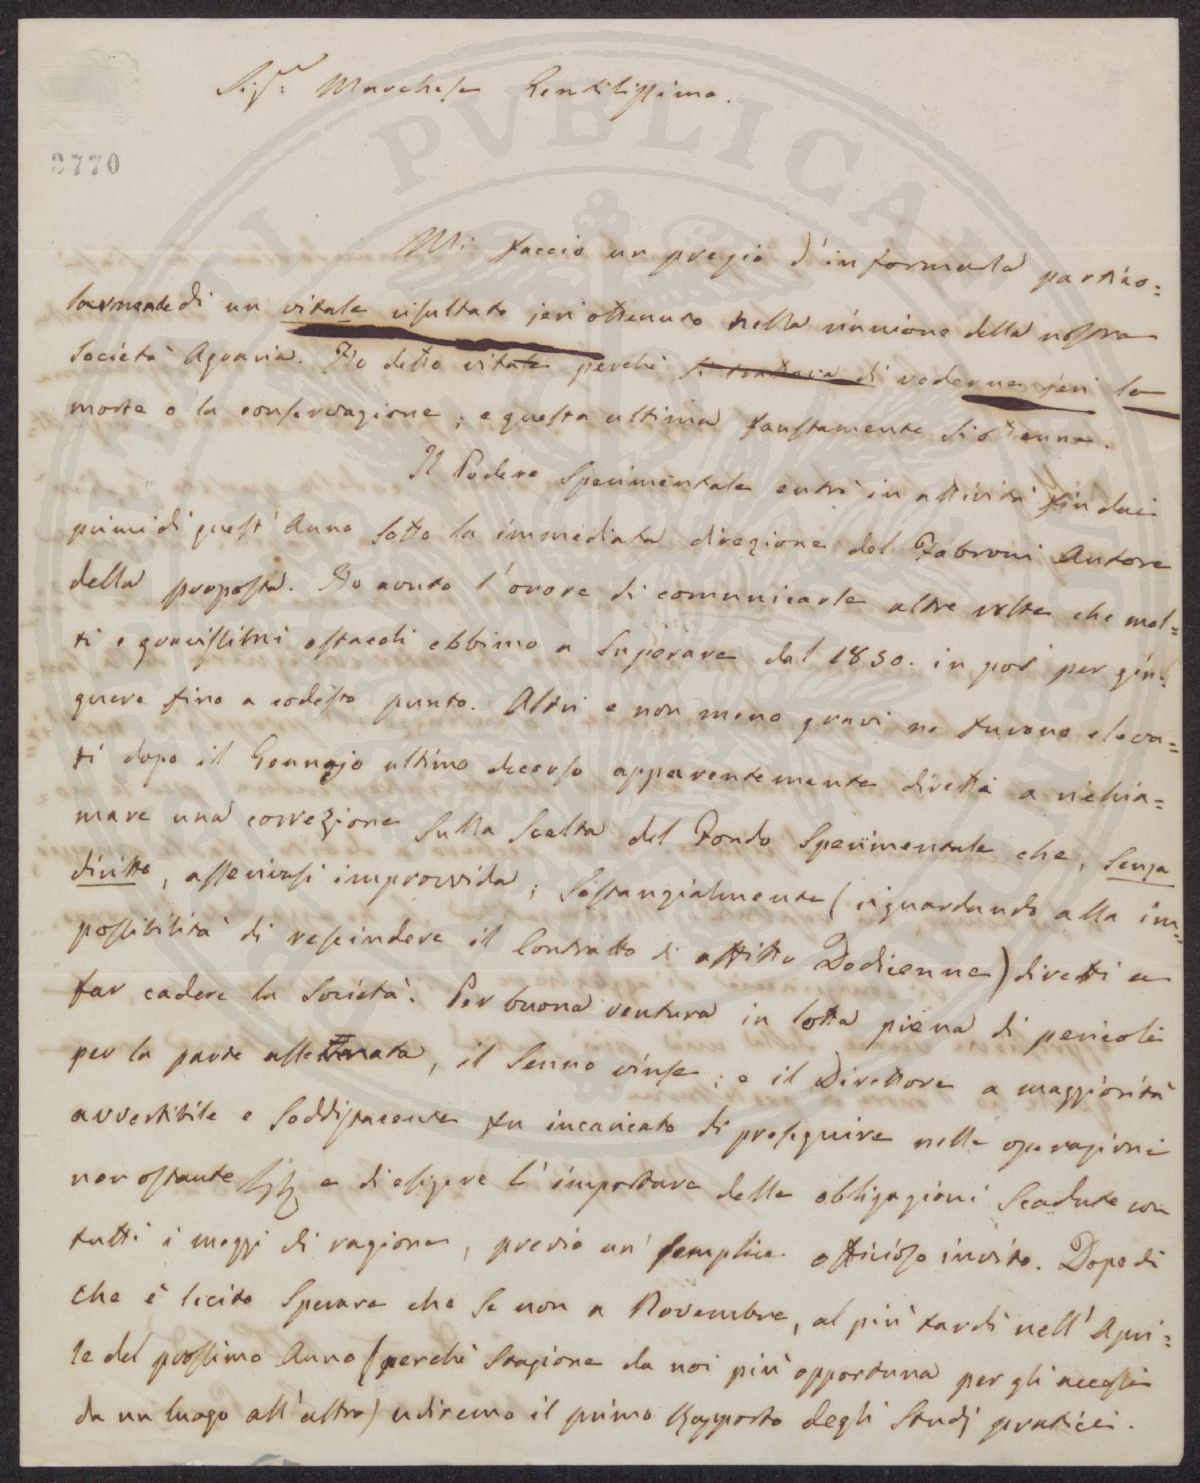 Sig.r Marchese Gentilissimo.
2770
Mi faccio un pregio d'informarla partico=
larmente di un vitale risultato jeri ottenuto nella riunione della nostra
Società Agraria. Ho detto vitale perchè si trattava di vederne jeri la
morte o la conservazione; e questa ultima faustamente si ottenne.
Il Podere Sperimentale entrò in attività fin dai
primi di quest'Anno sotto la immediata direzione del Fabroni Autore
della proposta. Ho avuto l'onore di comunicarle altre volte che mol=
ti e gravissimi ostacoli ebbimo a superare dal 1850. in poi per giun=
gere fino a codesto punto. Altri e non meno gravi ne furono eleva=
ti dopo il Gennajo ultimo decorso apparentemente diretti a richia=
mare una correzione sulla scelta del Fondo Sperimentale che, senza
diritto, asserivasi improvvida; sostanzialmente (riguardando alla im=
possibilità di rescindere il Contratto di affitto Dodicenne) diretti a
far cadere la Società. Per buona ventura in lotta piena di pericoli
per la parte , il Senno vinse; e il Direttore a maggiorità
avvertibile e soddisfacente fu incaricato di proseguire nelle operazioni
non ostante e di esigere l'importare delle obbligazioni scadute con
tutti i mezzi di ragione, previo un' semplice officioso invito. Dopo di
che è lecito sperare che se non a Novembre, al più tardi nell'Apri=
le del prossimo Anno (perchè stagione da noi più opportuna per gli accessi
da un luogo all'altro) udiremo il primo Rapporto degli Studj pratici.